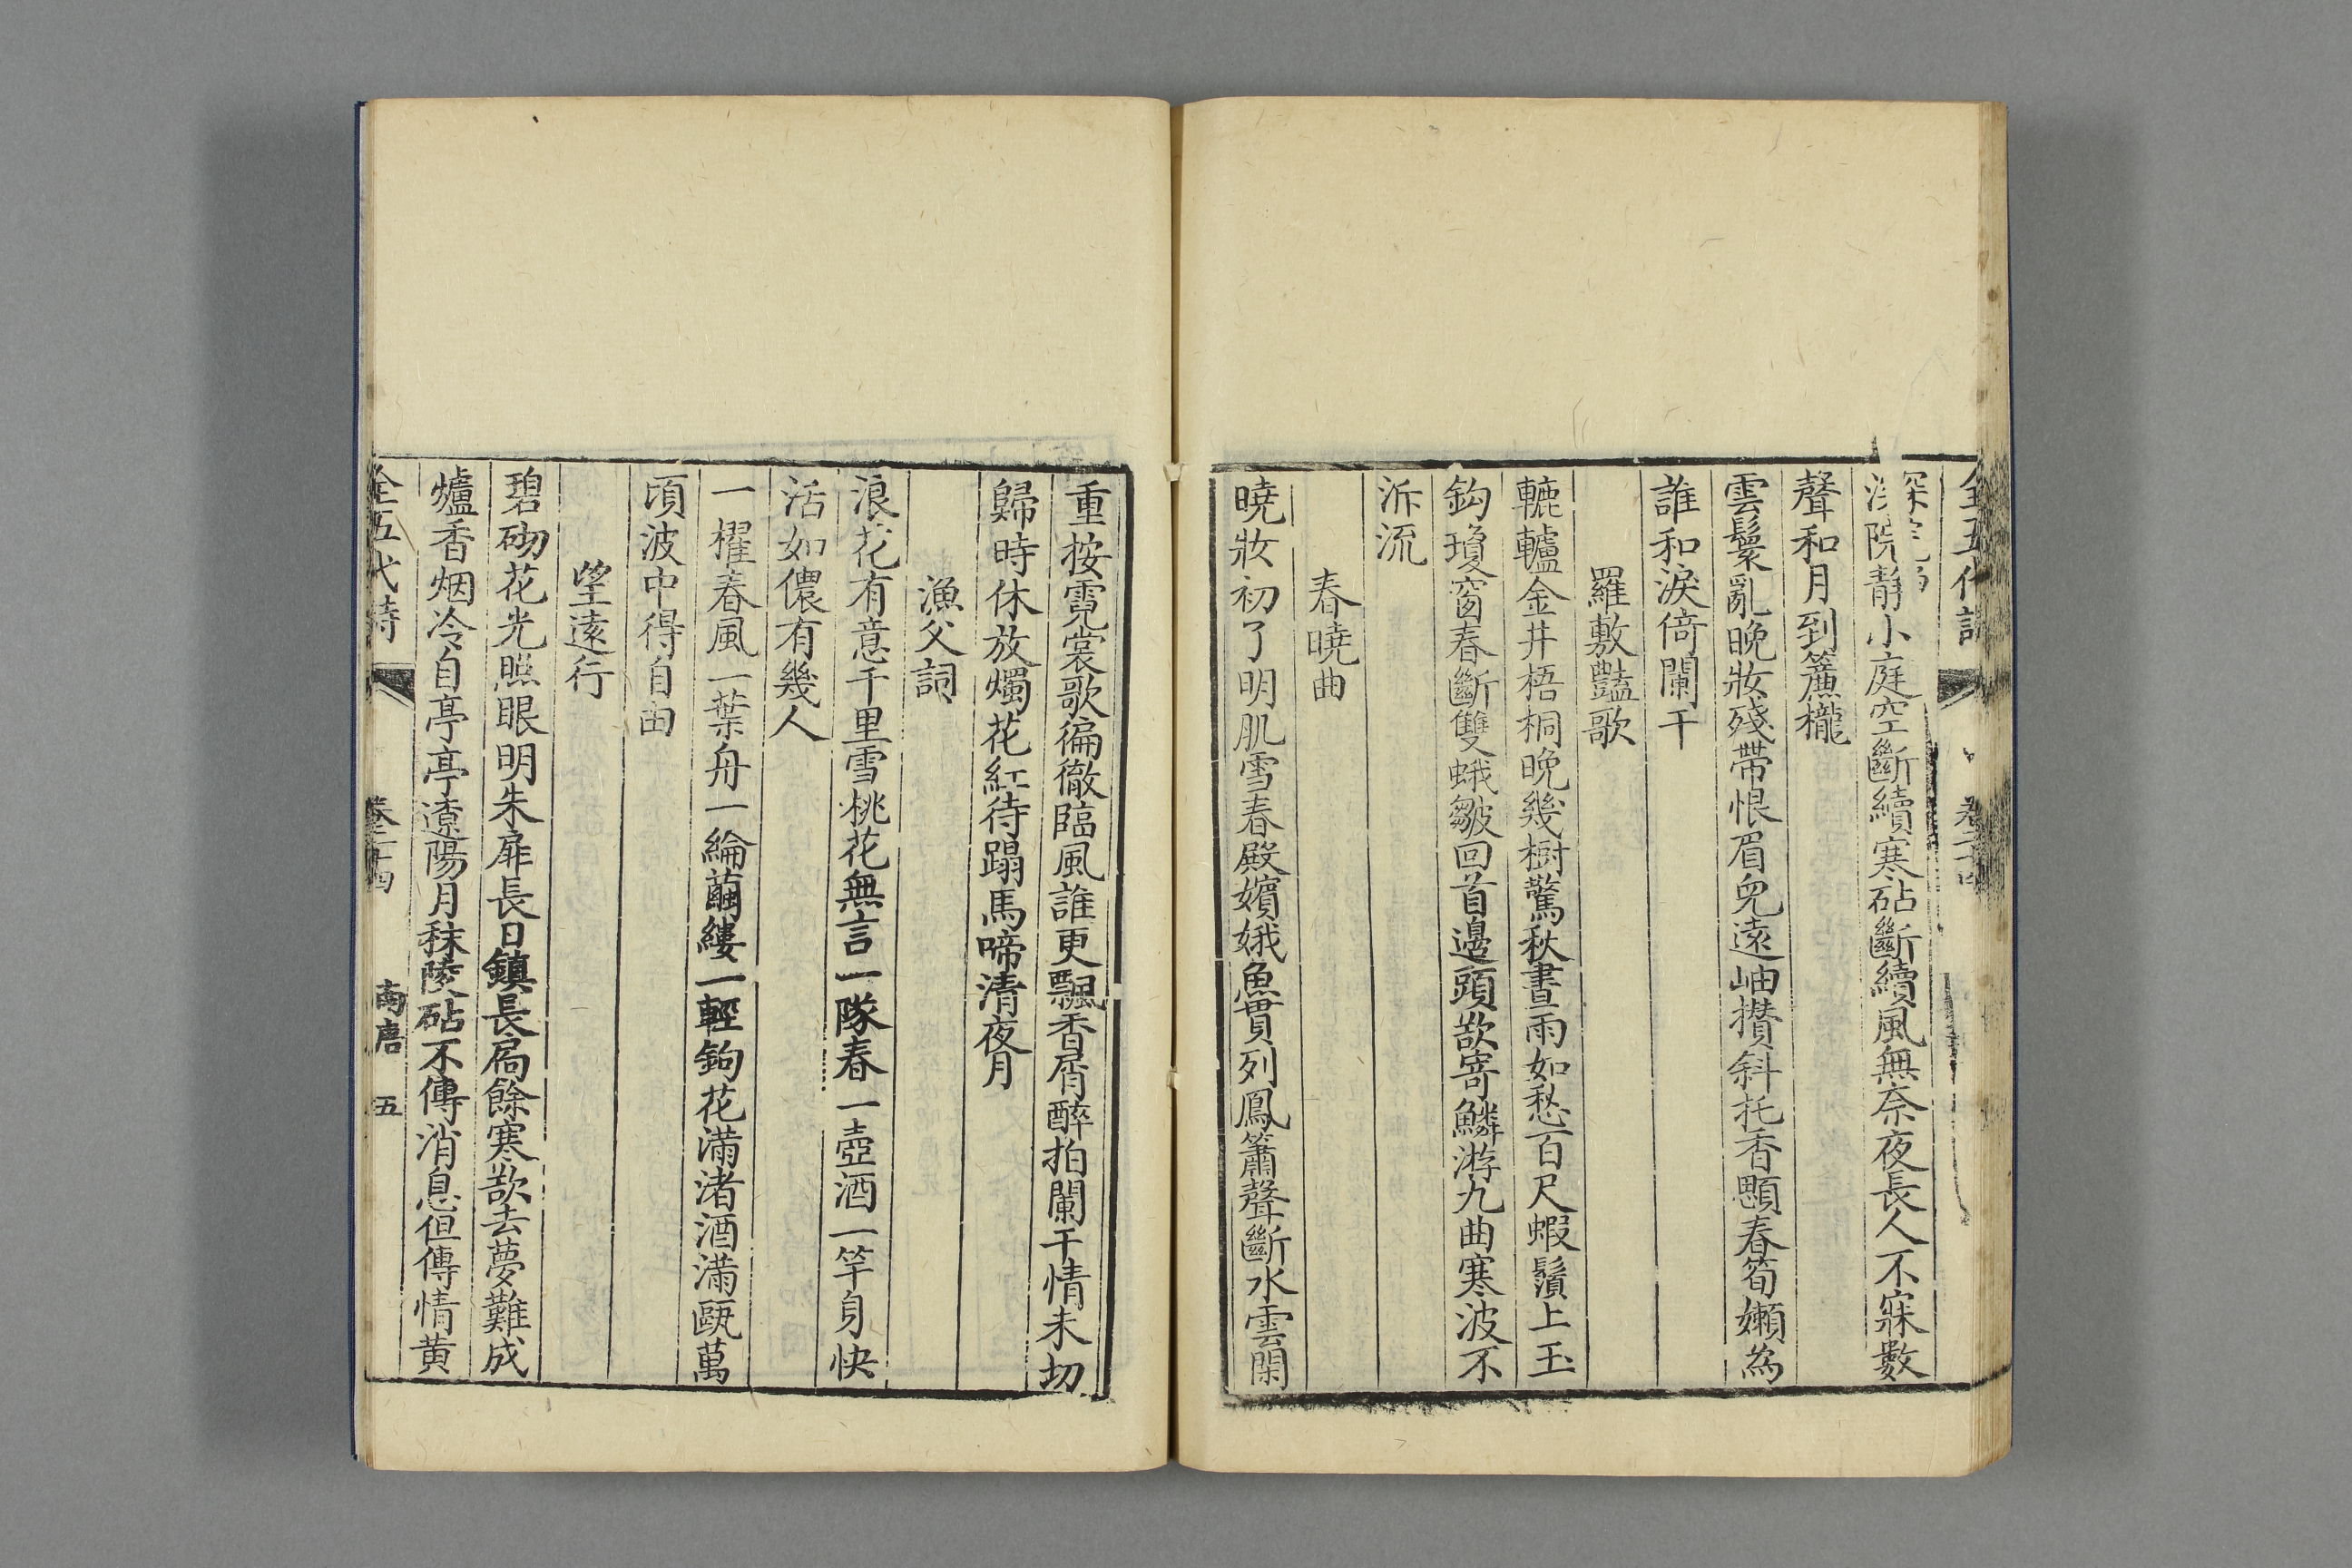 深院靜小庭空斷續寒砧斷續風無奈夜長人不寐數
聲和月到簾櫳
雲鬟亂晚妝殘帶恨眉兒遠岫攢斜托香顋春筍嬾為
誰和淚倚闌干
羅敷豔歌
轆轤金井梧桐晚幾樹驚秋晝雨如愁百尺蝦鬚上玉
鈎瓊窗春斷雙蛾皺回首邊頭欲寄鱗游九曲寒波不
泝流
春曉曲
曉妝初了明肌雪春殿嬪娥魚貫列鳳簫聲斷水雲閑
重按霓裳歌徧徹臨風誰更飄香屑醉拍闌干情未切
歸時休放燭花紅待蹋馬啼清夜月
漁父詞
浪花有意千里雪桃花無言一隊春一壺酒一竿身快
活如儂有幾人
一櫂春風一葉舟一綸繭縷一輕鉤花滿渚酒滿甌萬
頃波中得自由
望遠行
碧砌花光照眼明朱扉長日鎮長扃餘寒欲去夢難成
爐香烟冷自亭亭遼陽月秣陵砧不傳消息但傳情黄
全五代詩 卷二十四 南唐 五